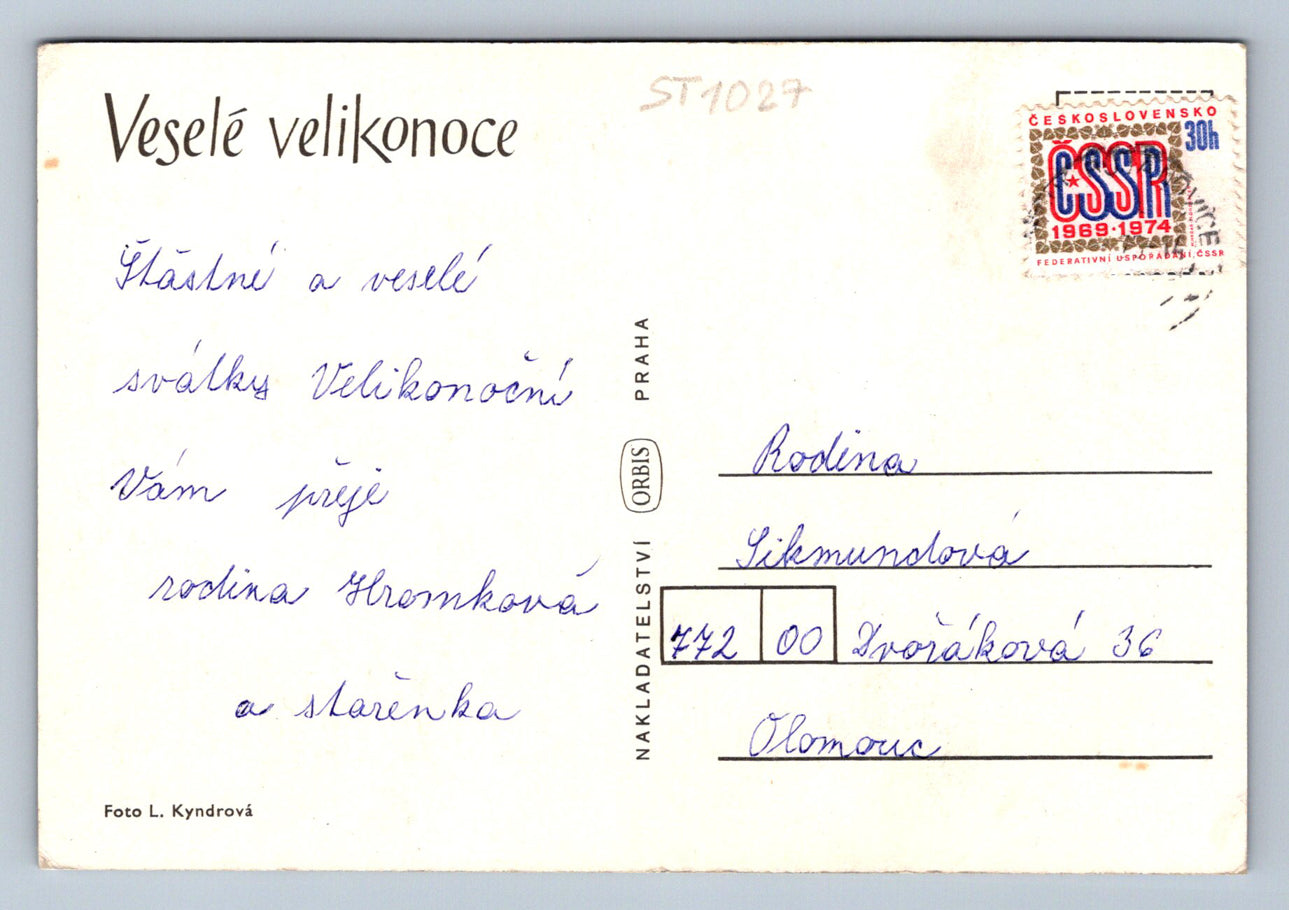 Veselé velikonoce
ST1027
ČESKOSLOVENSKO
30h
ČSSR
1969·1974
FEDERATIVNÍ USPOŘÁDÁNÍ ČSSR
Šťástné a veselé
svátky Velikonoční
Vám přeje
rodina Hromková
a stařenka
Foto L. Kyndrová
NAKLADATELSTVÍ ORBIS PRAHA
Rodina
Sikmundová
772 00 Dvořáková 36
Olomouc